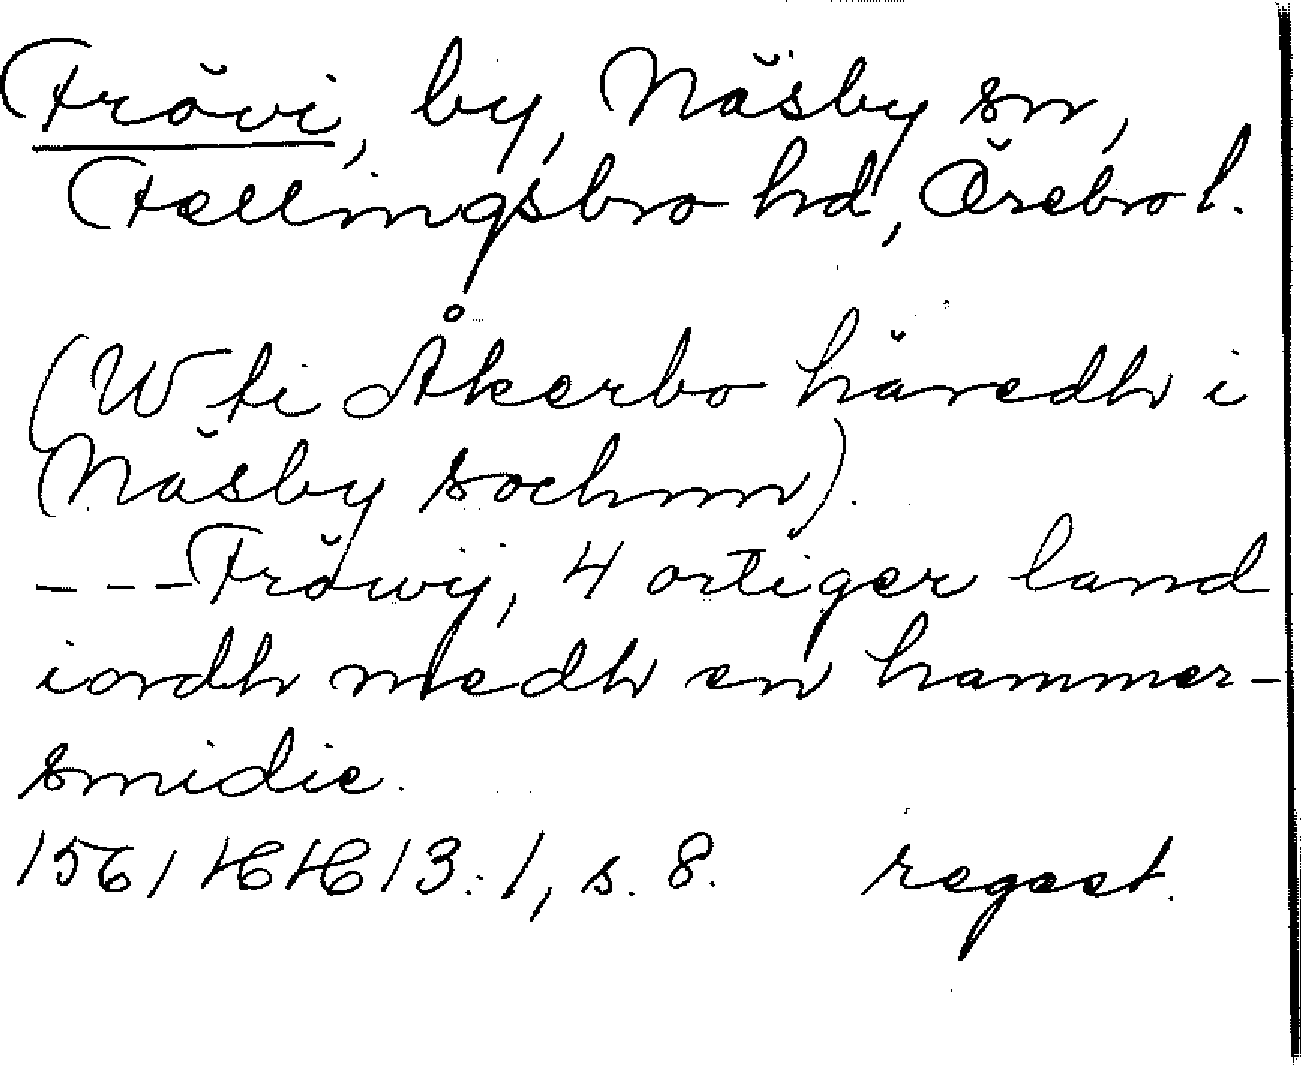 Frövi, by, Näsby sn,
Fellingsbro hd, Örebro l.
(W ti Åkerbo häredh i
Näsby sochnn).
---Fröwij, 4 örtiger land
iordh medh en hammer-
smidie.
1561 HH 13:1, s. 8. regest.